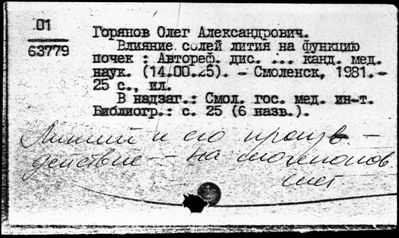 01
63779
Горянов Олег Александрович.
Влияние солей лития на функцию
почек : Автореф. дис. ... канд. мед.
наук. (14.00.25). - Смоленск, 1981.-
25 с., ил.
В надзаг.: Смол. гос. мед. ин-т.
Библиогр.: с. 25 (6 назв.).
Литий и его произв. -
действие -- на